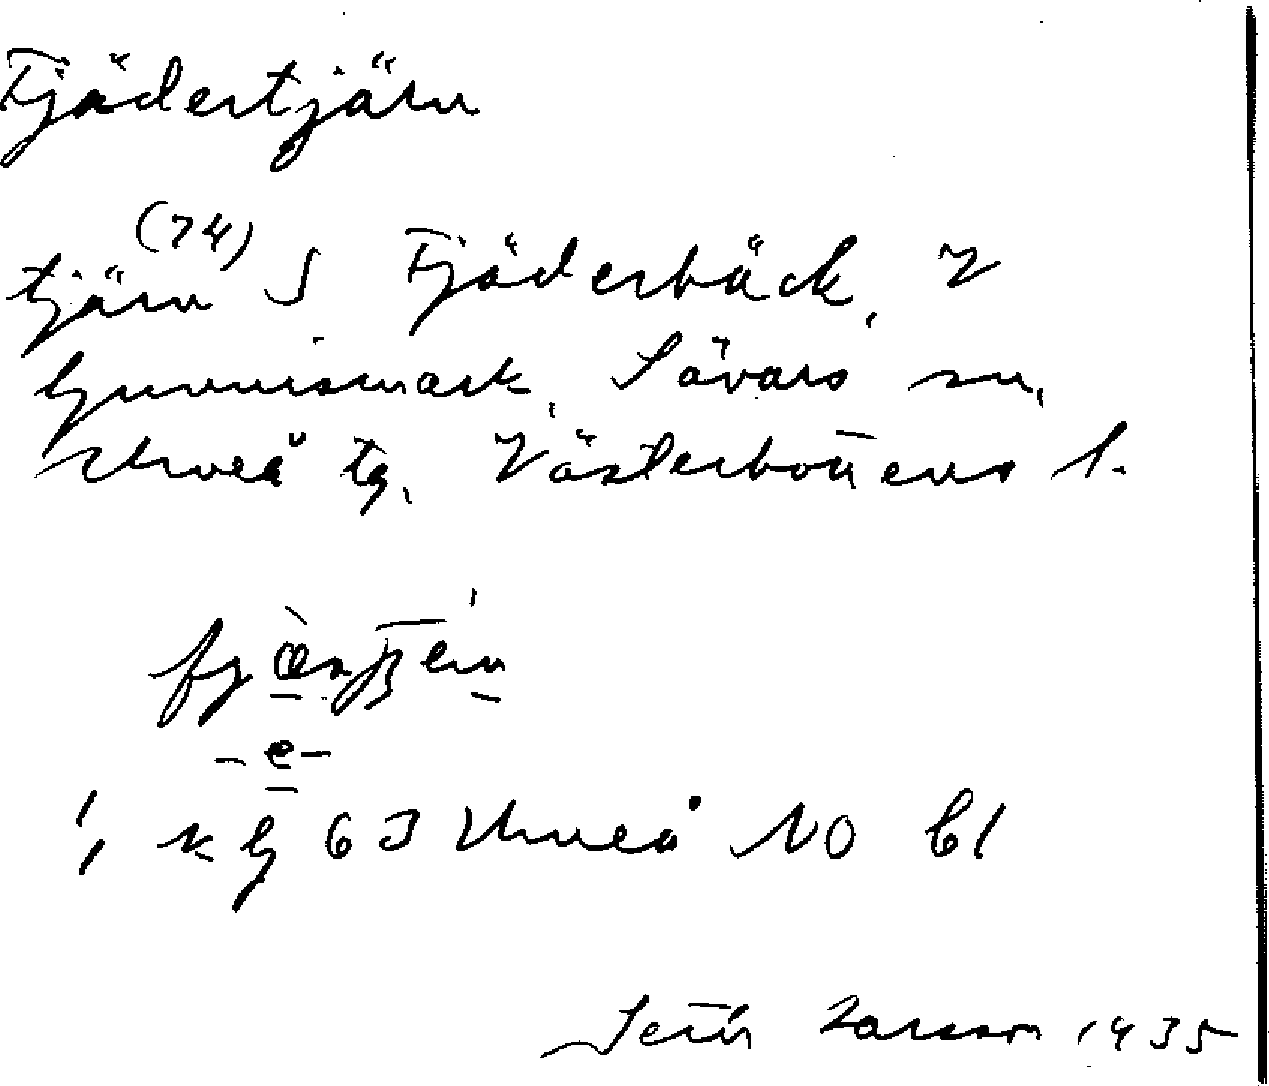 Fjädertjärn
(74)
tjärn S Fjäderbäck, V
Gunnismark, Sävars sn,
Umeå tg, Västerbottens l.
-e-
kg 63 Umeå NO bl
Larsson 1935